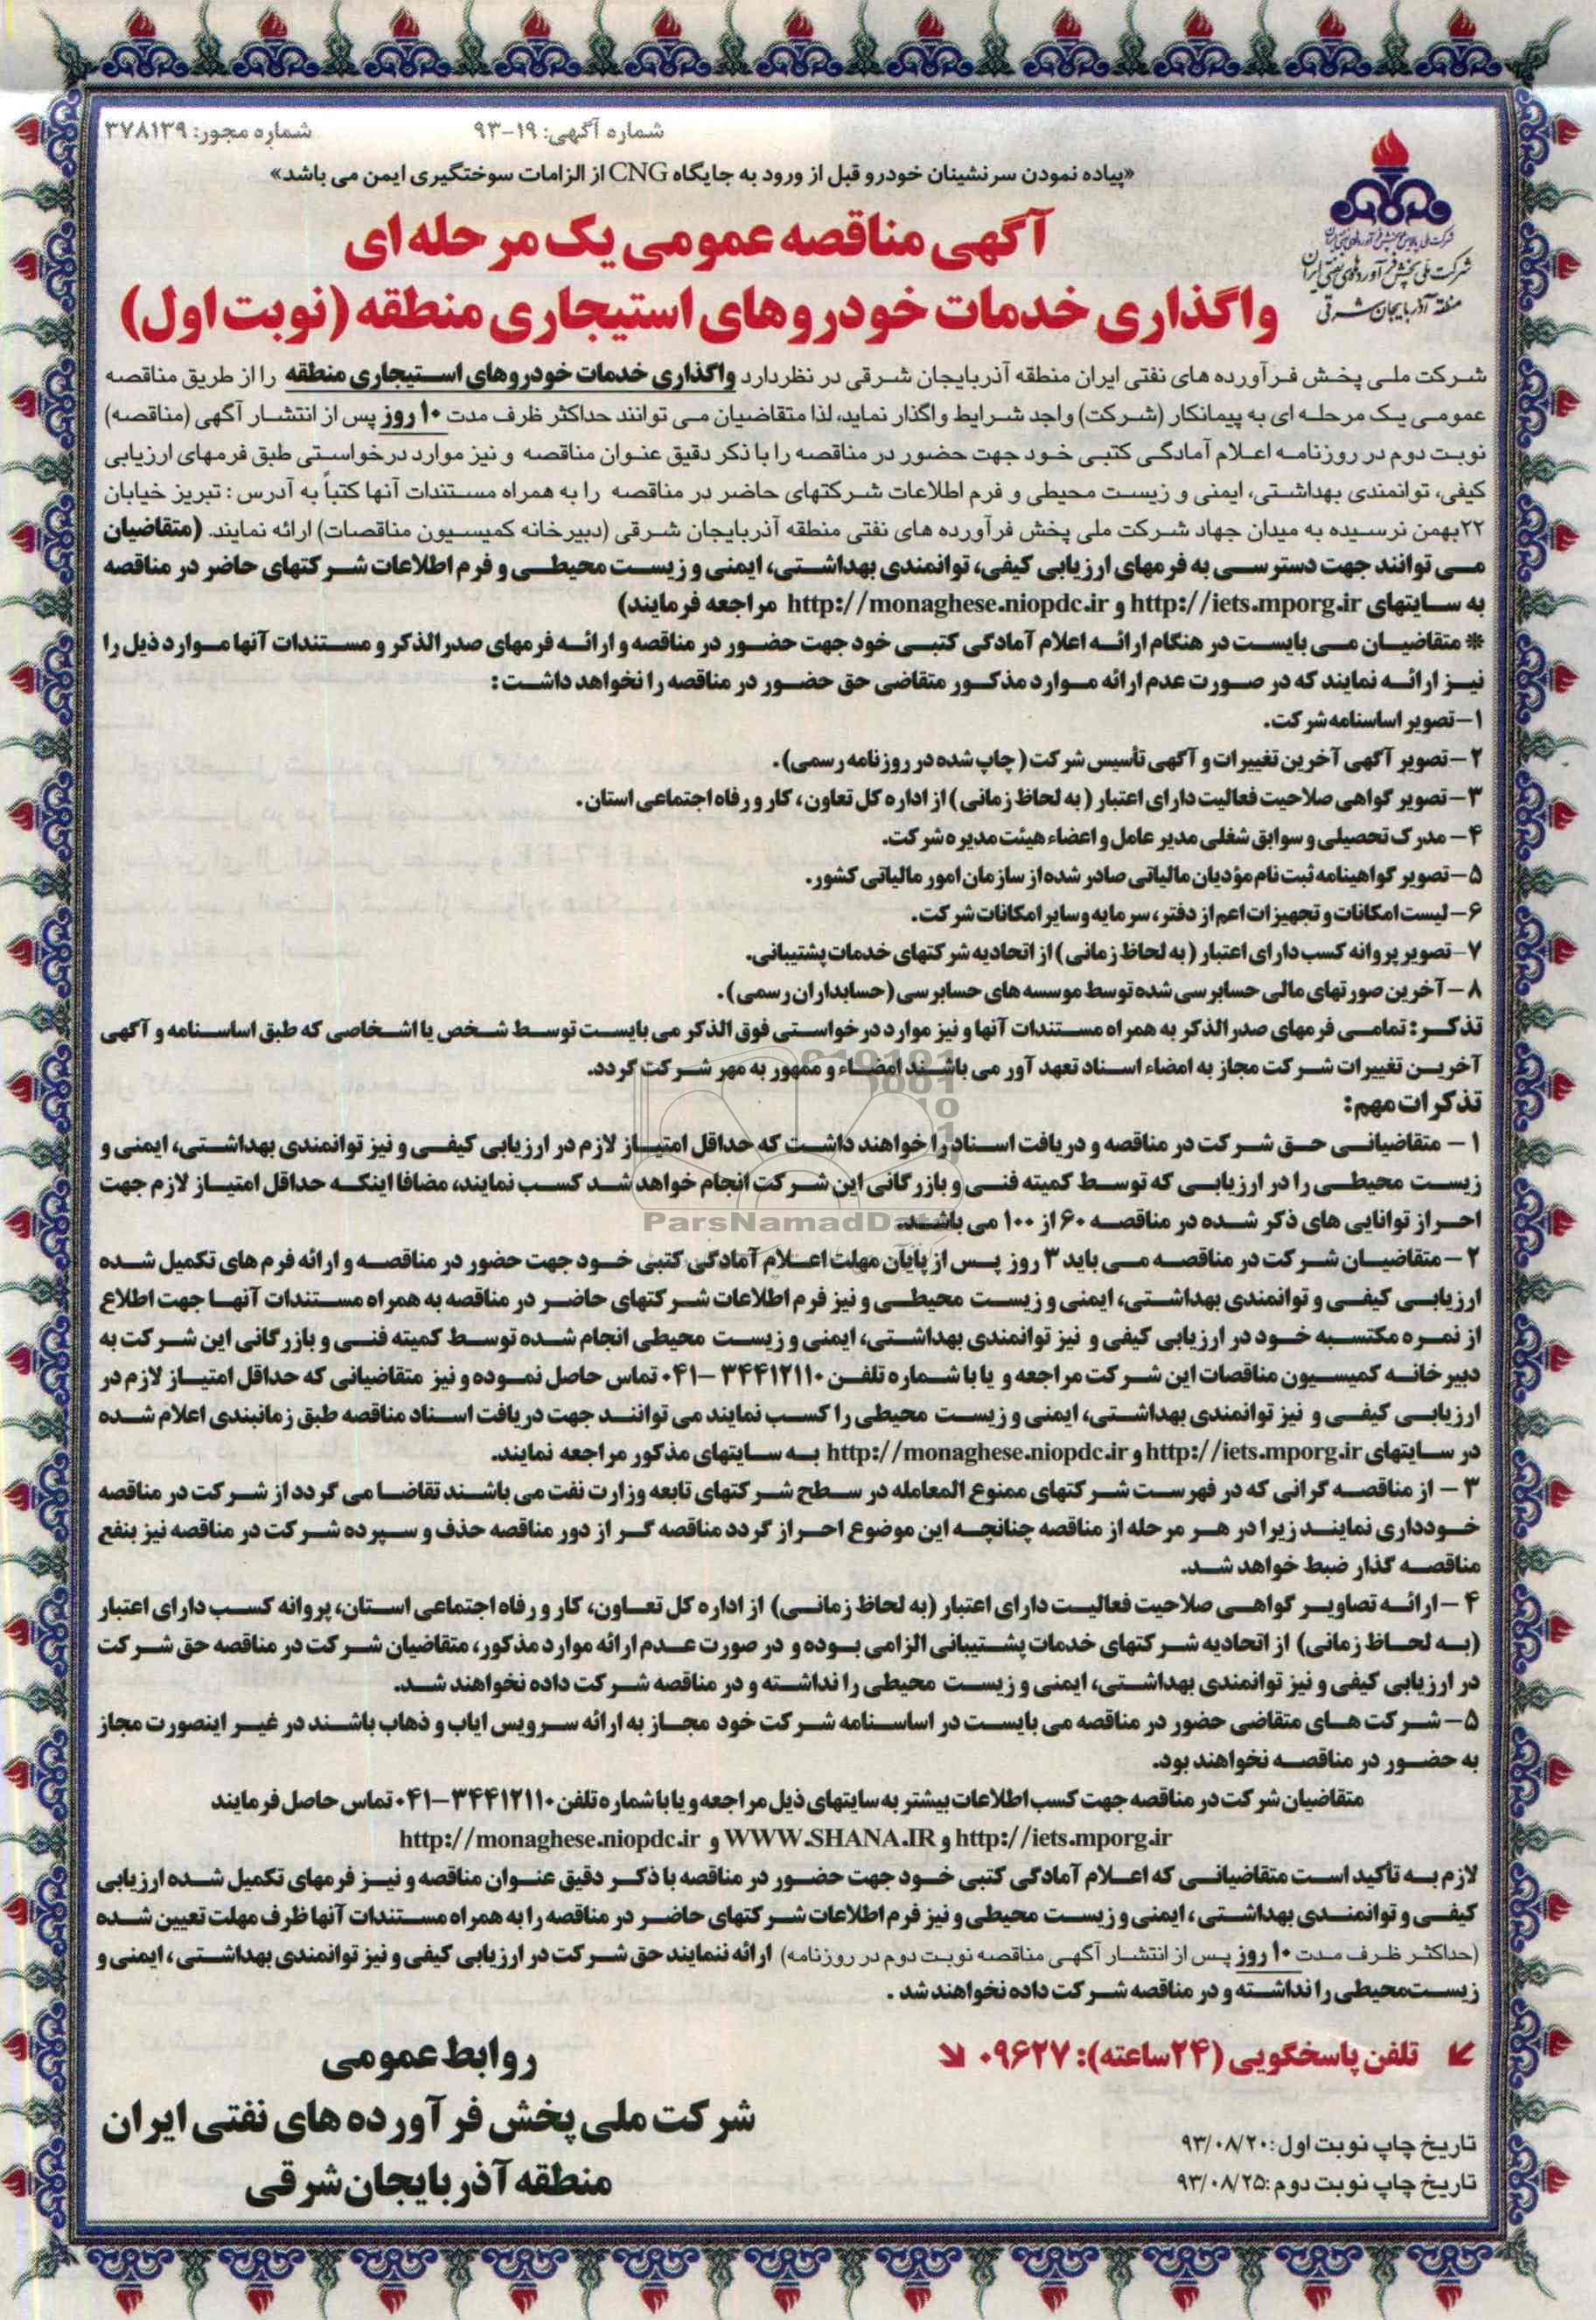 شماره آگهی: ۱۹-۹۳
شماره مجوز: ۳۷۸۱۳۹
«پیاده نمودن سرنشینان خودرو قبل از ورود به جایگاه CNG از الزامات سوختگیری ایمن می باشد»
شرکت ملی پخش فرآورده‌های نفتی ایران
منطقه آذربایجان شرقی
آگهی مناقصه عمومی یک مرحله ای
واگذاری خدمات خودروهای استیجاری منطقه (نوبت اول)
شرکت ملی پخش فرآورده های نفتی ایران منطقه آذربایجان شرقی در نظردارد واگذاری خدمات خودروهای استیجاری منطقه را از طریق مناقصه
عمومی یک مرحله ای به پیمانکار (شرکت) واجد شرایط واگذار نماید، لذا متقاضیان می توانند حداکثر ظرف مدت ۱۰ روز پس از انتشار آگهی (مناقصه)
نوبت دوم در روزنامه اعلام آمادگی کتبی خود جهت حضور در مناقصه را با ذکر دقیق عنوان مناقصه و نیز موارد درخواستی طبق فرمهای ارزیابی
کیفی، توانمندی بهداشتی، ایمنی و زیست محیطی و فرم اطلاعات شرکتهای حاضر در مناقصه را به همراه مستندات آنها کتباً به آدرس : تبریز خیابان
۲۲بهمن نرسیده به میدان جهاد شرکت ملی پخش فرآورده های نفتی منطقه آذربایجان شرقی (دبیرخانه کمیسیون مناقصات) ارائه نمایند. (متقاضیان
می توانند جهت دسترسی به فرمهای ارزیابی کیفی، توانمندی بهداشتی، ایمنی و زیست محیطی و فرم اطلاعات شرکتهای حاضر در مناقصه
به سایتهای http://iets.mporg.ir و http://monaghese.niopdc.ir مراجعه فرمایند)
* متقاضیان می بایست در هنگام ارائه اعلام آمادگی کتبی خود جهت حضور در مناقصه و ارائه فرمهای صدرالذکر و مستندات آنها موارد ذیل را
نیز ارائه نمایند که در صورت عدم ارائه موارد مذکور متقاضی حق حضور در مناقصه را نخواهد داشت :
۱- تصویر اساسنامه شرکت.
۲- تصویر آگهی آخرین تغییرات و آگهی تأسیس شرکت ( چاپ شده در روزنامه رسمی) .
۳- تصویر گواهی صلاحیت فعالیت دارای اعتبار ( به لحاظ زمانی ) از اداره کل تعاون ، کار و رفاه اجتماعی استان.
۴- مدرک تحصیلی و سوابق شغلی مدیر عامل و اعضاء هیئت مدیره شرکت.
۵- تصویر گواهینامه ثبت نام مؤدیان مالیاتی صادر شده از سازمان امور مالیاتی کشور.
۶- لیست امکانات و تجهیزات اعم از دفتر، سرمایه و سایر امکانات شرکت.
۷- تصویر پروانه کسب دارای اعتبار ( به لحاظ زمانی ) از اتحادیه شرکتهای خدمات پشتیبانی.
۸- آخرین صورتهای مالی حسابرسی شده توسط موسسه های حسابرسی (حسابداران رسمی) .
تذکر : تمامی فرمهای صدرالذکر به همراه مستندات آنها و نیز موارد درخواستی فوق الذکر می بایست توسط شخص یا اشخاصی که طبق اساسنامه و آگهی
آخرین تغییرات شرکت مجاز به امضاء اسناد تعهد آور می باشند امضاء و ممهور به مهر شرکت گردد.
تذکرات مهم:
۱ - متقاضیانی حق شرکت در مناقصه و دریافت اسناد را خواهند داشت که حداقل امتیاز لازم در ارزیابی کیفی و نیز توانمندی بهداشتی، ایمنی و
زیست محیطی را در ارزیابی که توسط کمیته فنی و بازرگانی این شرکت انجام خواهد شد کسب نمایند، مضافا اینکه حداقل امتیاز لازم جهت
احراز توانایی های ذکر شده در مناقصه ۶۰ از ۱۰۰ می باشد.
ParsNamadData
۲- متقاضیان شرکت در مناقصه می باید ۳ روز پس از پایان مهلت اعلام آمادگی کتبی خود جهت حضور در مناقصه و ارائه فرم های تکمیل شده
ارزیابی کیفی و توانمندی بهداشتی، ایمنی و زیست محیطی و نیز فرم اطلاعات شرکتهای حاضر در مناقصه به همراه مستندات آنها جهت اطلاع
از نمره مکتسبه خود در ارزیابی کیفی و نیز توانمندی بهداشتی، ایمنی و زیست محیطی انجام شده توسط کمیته فنی و بازرگانی این شرکت به
دبیرخانه کمیسیون مناقصات این شرکت مراجعه و یا با شماره تلفن ۳۴۴۱۲۱۱۰ -۰۴۱ تماس حاصل نموده و نیز متقاضیانی که حداقل امتیاز لازم در
ارزیابی کیفی و نیز توانمندی بهداشتی، ایمنی و زیست محیطی را کسب نمایند می توانند جهت دریافت اسناد مناقصه طبق زمانبندی اعلام شده
در سایتهای http://iets.mporg.ir و http://monaghese.niopdc.ir به سایتهای مذکور مراجعه نمایند.
۳ - از مناقصه گرانی که در فهرست شرکتهای ممنوع المعامله در سطح شرکتهای تابعه وزارت نفت می باشند تقاضا می گردد از شرکت در مناقصه
خودداری نمایند زیرا در هر مرحله از مناقصه چنانچه این موضوع احراز گردد مناقصه گر از دور مناقصه حذف و سپرده شرکت در مناقصه نیز بنفع
مناقصه گذار ضبط خواهد شد.
۴ - ارائه تصاویر گواهی صلاحیت فعالیت دارای اعتبار (به لحاظ زمانی) از اداره کل تعاون، کار و رفاه اجتماعی استان، پروانه کسب دارای اعتبار
(به لحاظ زمانی) از اتحادیه شرکتهای خدمات پشتیبانی الزامی بوده و در صورت عدم ارائه موارد مذکور، متقاضیان شرکت در مناقصه حق شرکت
در ارزیابی کیفی و نیز توانمندی بهداشتی، ایمنی و زیست محیطی را نداشته و در مناقصه شرکت داده نخواهند شد.
۵- شرکت های متقاضی حضور در مناقصه می بایست در اساسنامه شرکت خود مجاز به ارائه سرویس ایاب و ذهاب باشند در غیر اینصورت مجاز
به حضور در مناقصه نخواهند بود.
متقاضیان شرکت در مناقصه جهت کسب اطلاعات بیشتر به سایتهای ذیل مراجعه و یا با شماره تلفن ۳۴۴۱۲۱۱۰-۰۴۱ تماس حاصل فرمایند
http://iets.mporg.ir و WWW.SHANA.IR و http://monaghese.niopdc.ir
لازم به تأکید است متقاضیانی که اعلام آمادگی کتبی خود جهت حضور در مناقصه با ذکر دقیق عنوان مناقصه و نیز فرمهای تکمیل شده ارزیابی
کیفی و توانمندی بهداشتی ، ایمنی و زیست محیطی و نیز فرم اطلاعات شرکتهای حاضر در مناقصه را به همراه مستندات آنها ظرف مهلت تعیین شده
(حداکثر ظرف مدت ۱۰ روز پس از انتشار آگهی مناقصه نوبت دوم در روزنامه) ارائه ننمایند حق شرکت در ارزیابی کیفی و نیز توانمندی بهداشتی ، ایمنی و
زیست‌محیطی را نداشته و در مناقصه شرکت داده نخواهند شد .
تلفن پاسخگویی (۲۴ساعته): ۰۹۶۲۷
روابط عمومی
شرکت ملی پخش فرآورده های نفتی ایران
منطقه آذربایجان شرقی
تاریخ چاپ نوبت اول: ۹۳/۰۸/۲۰
تاریخ چاپ نوبت دوم: ۹۳/۰۸/۲۵